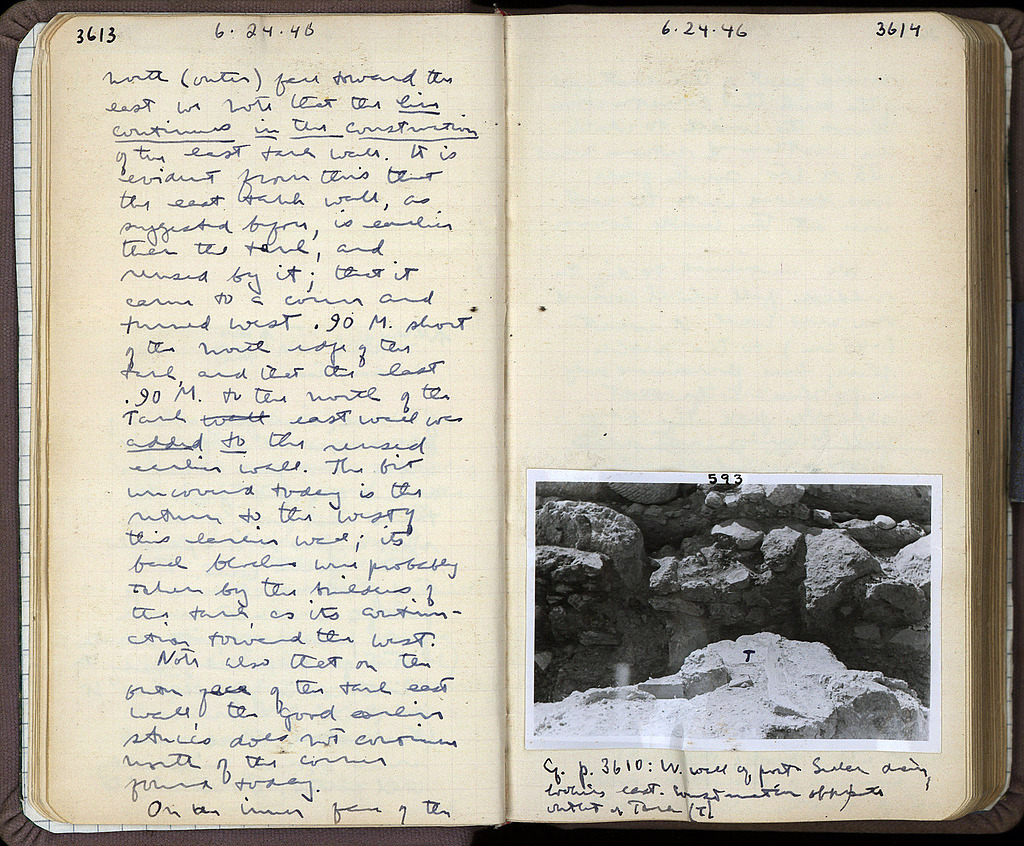 3613
6·24·46
north (outer) face toward the
east we note that the line
continues in the construction
of the east tank wall. It is
evident from this that
the east tank wall, as
suggested before, is earlier
then the tank, and
reused by it; that it
came to a corner and
turned west .90 M. short
of the north edge of the
tank, and that the last
.90 M. to the north of the
Tank wall east wall was
added to the reused
earlier wall. The bit
uncovered today is the
return to the west of
this earlier wall; its
blocks were probably
taken by the builders of
the tank, as its continu-
ation toward the west.
Note also that on the
face of the tank east
wall the good earlier
does not continue
north of the corner
found today.
On the inner face of the
6·24·46
3614
593
T
Cf. p. 3610: W. wall of post-
looking east. opposite
outlet of Tank (T)